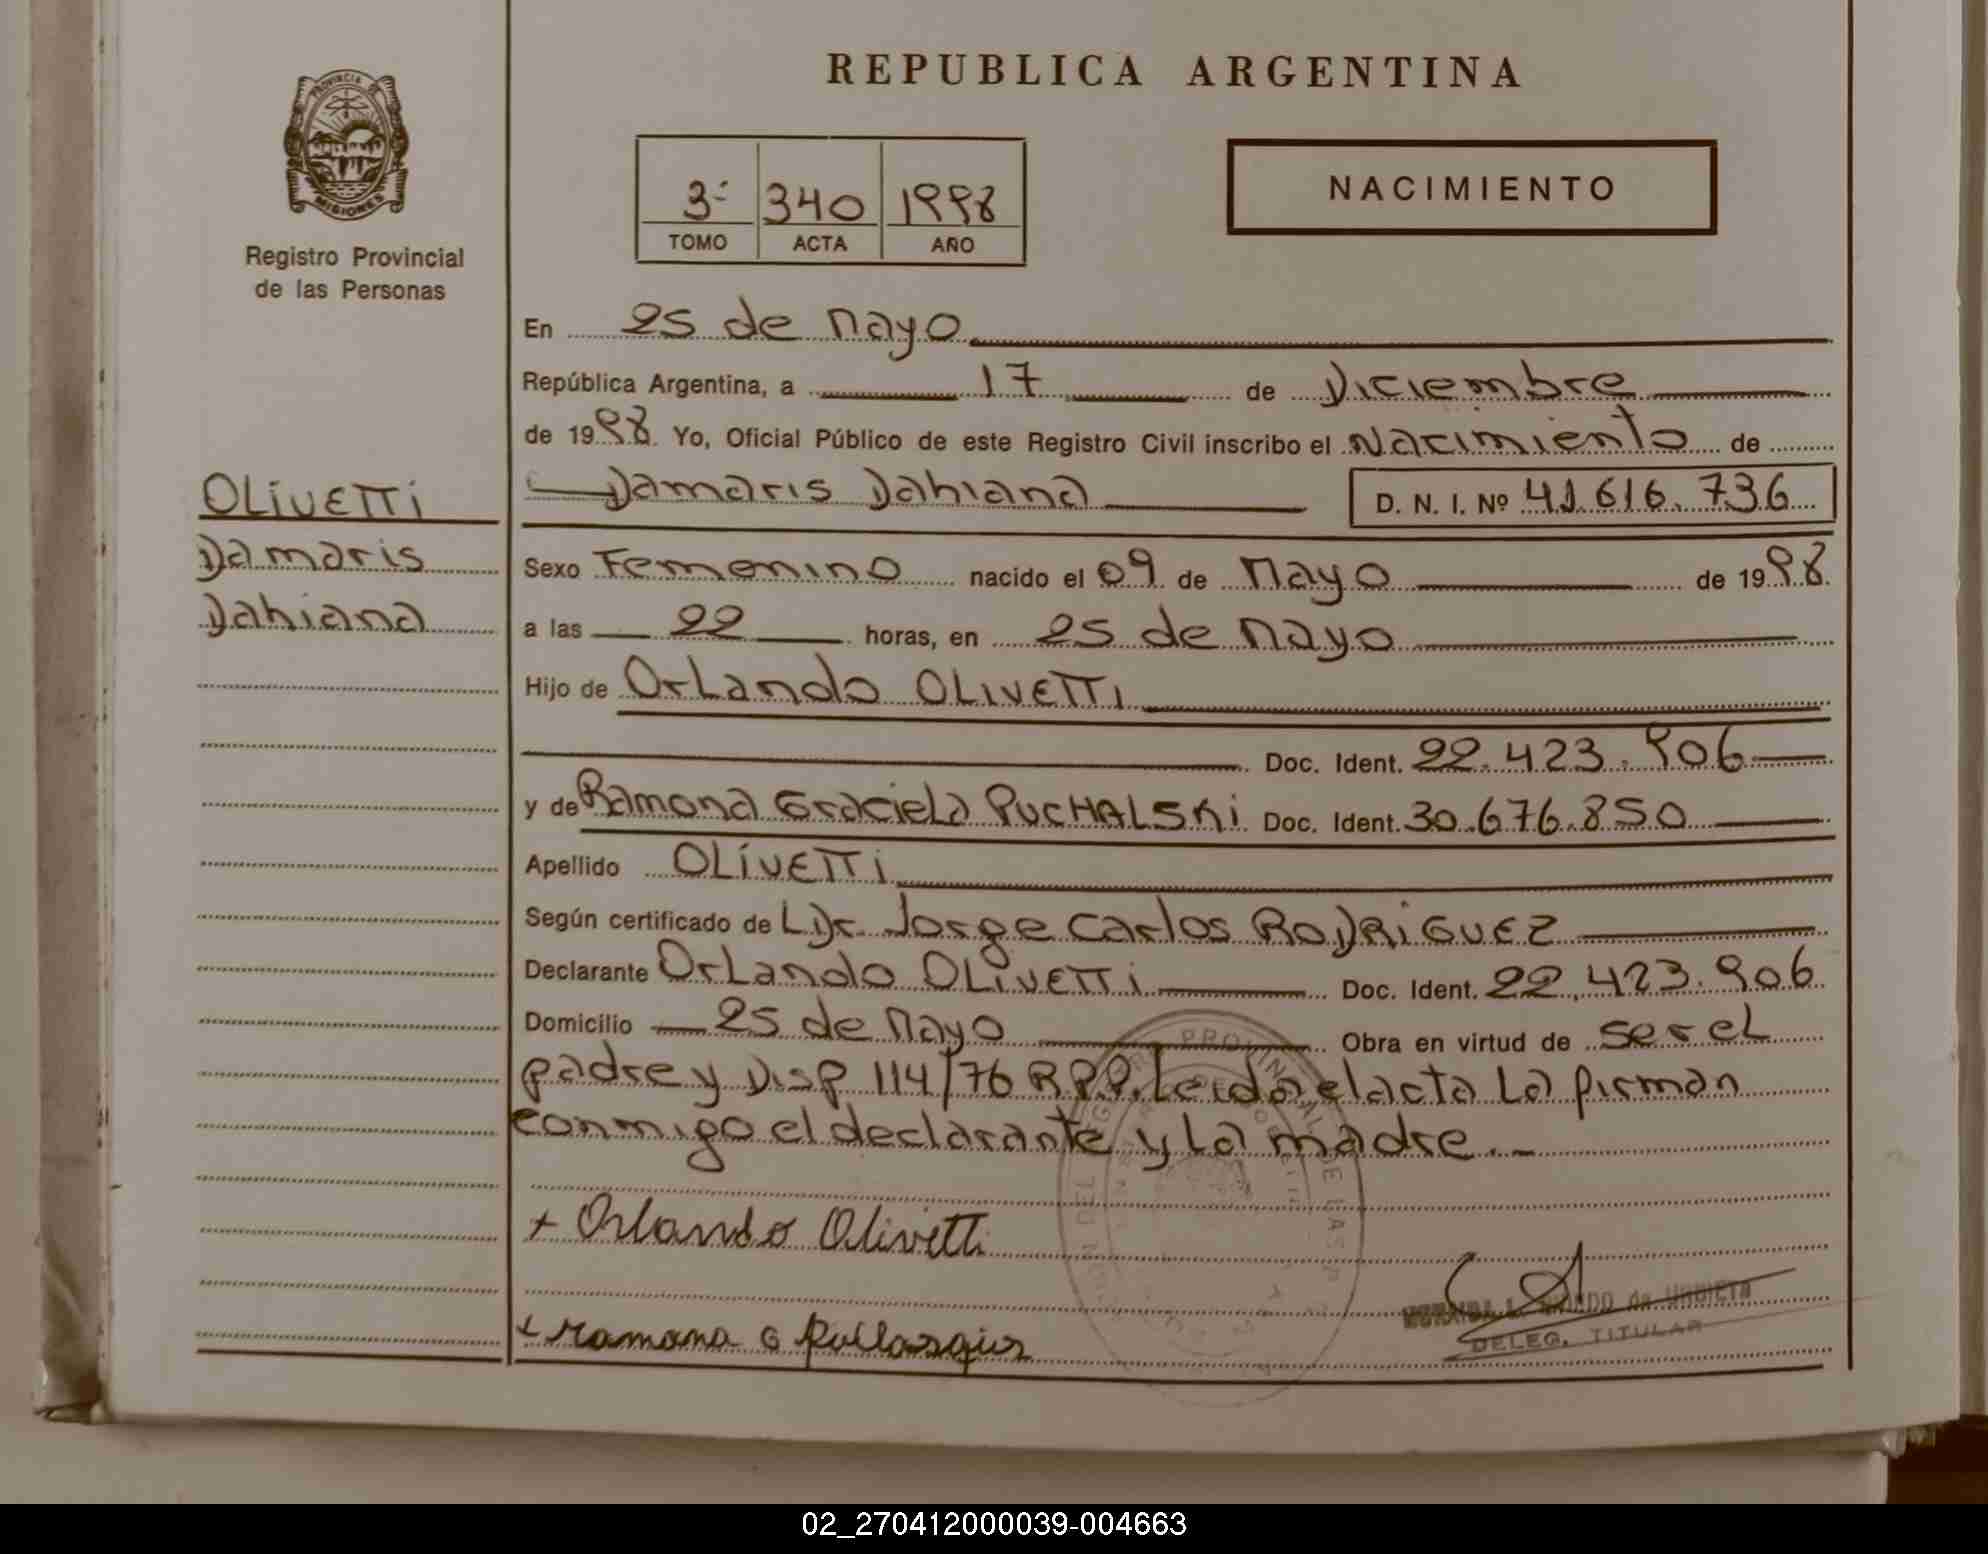 REPUBLICA ARGENTINA
PROVINCIA DE
MISIONES
Registro Provincial
de las Personas
3º 340 1998
TOMO ACTA AÑO
NACIMIENTO
En 25 de Mayo
República Argentina, a 17 de Diciembre
de 1998. Yo, Oficial Público de este Registro Civil inscribo el Nacimiento de
Damaris Dahiana D. N. I. Nº 41.616.736
OLIVETTI
Damaris
Dahiana
Sexo Femenino nacido el 09 de Mayo de 1998.
a las 22 horas, en 25 de Mayo
Hijo de Orlando OLIVETTI
Doc. Ident. 22.423.906
y de Ramona Graciela PUCHALSKI Doc. Ident. 30.676.850
Apellido OLIVETTI
Según certificado de L Dr. Jorge Carlos RODRIGUEZ
Declarante Orlando OLIVETTI Doc. Ident. 22.423.906
Domicilio 25 de Mayo Obra en virtud de ser el
padre y Disp 114/76 R.P.P. Leida el acta La firman
conmigo el declarante y La madre.-
+ Orlando Olivetti
+ ramona G
DELEG. TITULAR
02_270412000039-004663